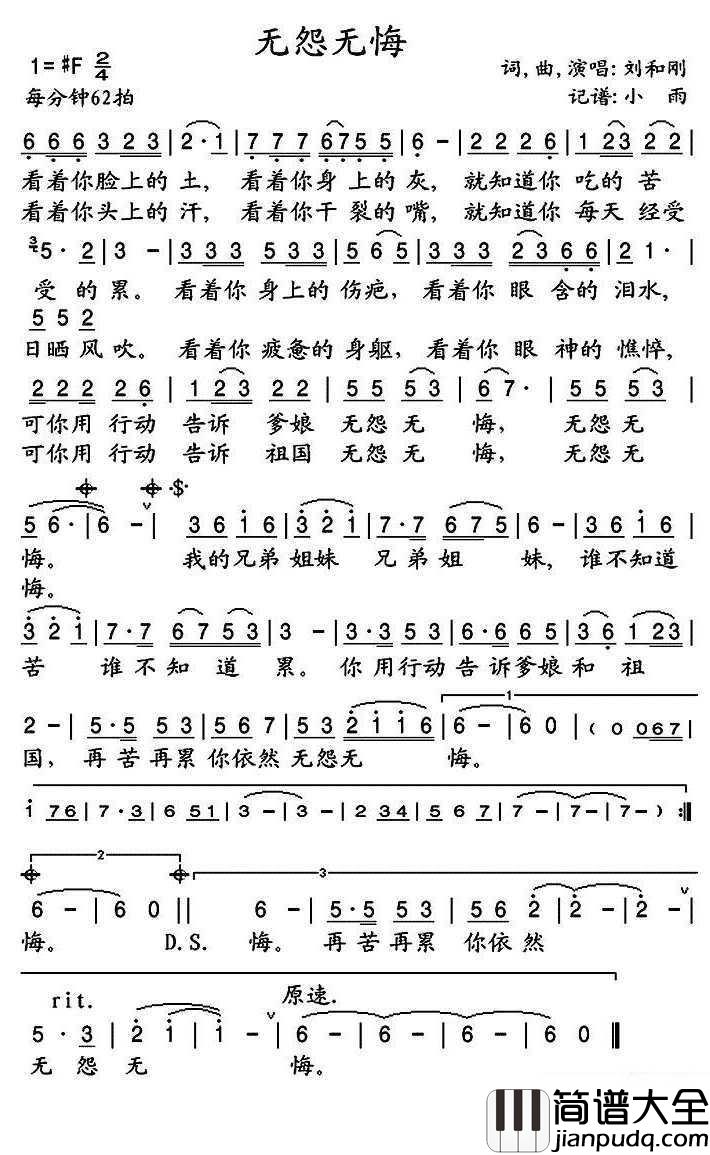 无怨无悔
1=#F 2/4
词,曲,演唱:刘和刚
每分钟62拍
记谱:小 雨
6 6 6 3 2 3 | 2 · 1 | 7 7 7 6 7 5 5 | 6 - | 2 2 2 6 | 1 2 3 2 2 |
看着你脸上的 土, 看着你身 上的 灰, 就知道你 吃的 苦
看着你头上的 汗, 看着你干 裂的 嘴, 就知道你 每天 经受
3 5 · 2 | 3 - | 3 3 3 5 3 3 | 5 6 5 | 3 3 3 2 3 6 6 | 2 1 · |
受 的 累。 看着你 身上的 伤疤, 看着你 眼 含的 泪水,
5 5 2
日晒 风 吹。 看着你 疲惫的 身躯, 看着你 眼 神的 憔悴,
2 2 2 2 6 | 1 2 3 2 2 | 5 5 5 3 | 6 7 · | 5 5 5 3 |
可你用 行动 告诉 爹娘 无怨 无 悔, 无怨 无
可你用 行动 告诉 祖国 无怨 无 悔, 无怨 无
5 6 · | 6 - | 3 6 i 6 | 3 2 i | 7 · 7 6 7 5 | 6 - | 3 6 i 6 |
悔。 我的兄弟 姐妹 兄 弟 姐 妹, 谁不知道
悔。
3 2 i | 7 · 7 6 7 5 3 | 3 - | 3 · 3 5 3 | 6 · 6 6 5 | 3 6 1 2 3 |
苦 谁 不 知 道 累。 你 用行动 告 诉爹娘 和 祖
1
2 - | 5 · 5 5 3 | 5 6 7 | 5 3 2 i i 6 | 6 - | 6 0 | ( 0 0 6 7 |
国, 再 苦 再累 你依然 无怨无 悔。
i 7 6 | 7 · 3 | 6 5 1 | 3 - | 3 - | 2 3 4 | 5 6 7 | 7 - | 7 - | 7 - ) :||
2 3
6 - | 6 0 || 6 - | 5 · 5 5 3 | 5 6 2 | 2 - | 2 - |
悔。 D.S. 悔。 再 苦 再 累 你依 然
rit. 原速.
5 · 3 | 2 i | i - | 6 - | 6 - | 6 - | 6 0 |
无 怨 无 悔。
简谱大全
jianpudq.com